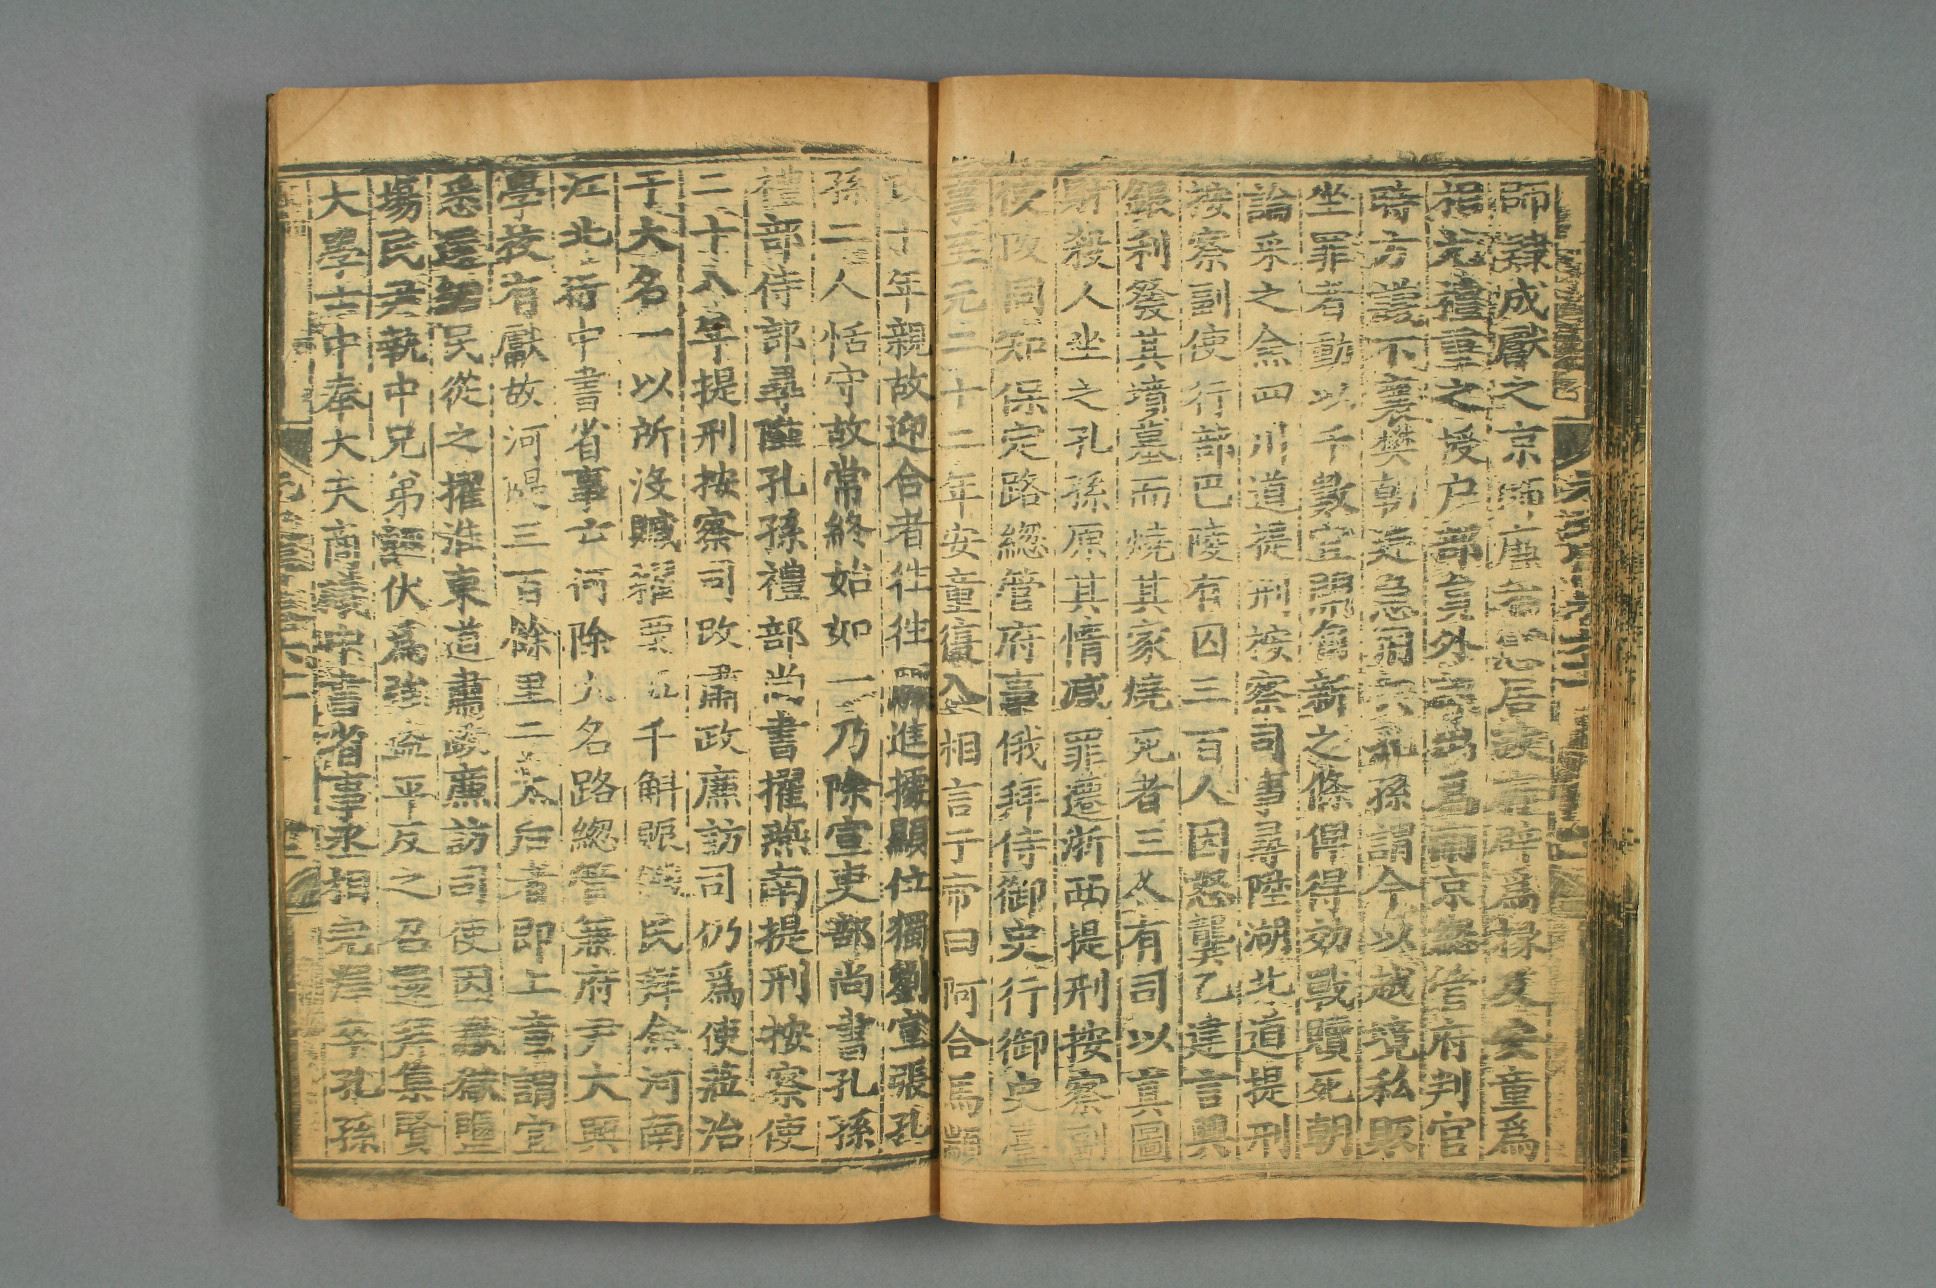 師獄成獻之京師唐者 后議 辟爲掾及安童爲
祖元禮重之授户部員外 出爲南京總管府判官
時方議下襄樊朝廷急用 孔孫謂今以越境私販
坐罪者動以千數宜開自新之條俾得効戰贖死朝
論采之僉四川道提刑按察司事尋陞湖北道提刑
按察副使行部巴陵有囚三百人因怒龔乙建言興
銀利發其墳墓而燒其家燒死者三人有司以真圖
財殺人坐之孔孫原其情减罪遷浙西提刑按察副
使改同知保定路總管府事俄拜侍御史行御史臺
事至元二十二年安童復入相言于帝曰阿合馬顓
政十年親故迎合者往往驟進據顯位獨劉宣張孔
孫二人恬守故常終始如一乃除宣吏部尚書孔孫
禮部侍郎尋陞孔孫禮部尚書擢燕南提刑按察使
二十八年提刑按察司改肅政廉訪司仍爲使莅治
于大名一以所没贓糴粟五千斛賑饑民拜僉河南
江北行中書省事亡何除大名路總管兼府尹大興
學校有獻故河隄三百餘里于太后者即上章謂宜
悉還細民從之擢淮東道肅政廉訪司使因讞獄鹽
場民尹執中兄弟誣伏爲強盗平反之召還拜集賢
大學士中奉大夫商議中書省事丞相完澤卒孔孫